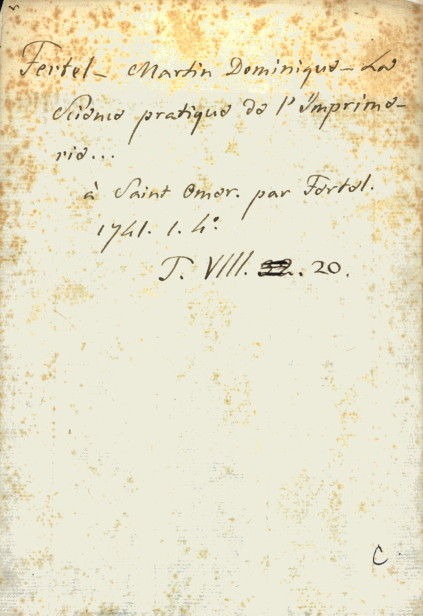 Fertel - Martin Dominique - La
Science pratique de l'Imprime-
rie...
à Saint Omer. par Fertel.
1741. 1. 4°.
T. VIII. 20.
C